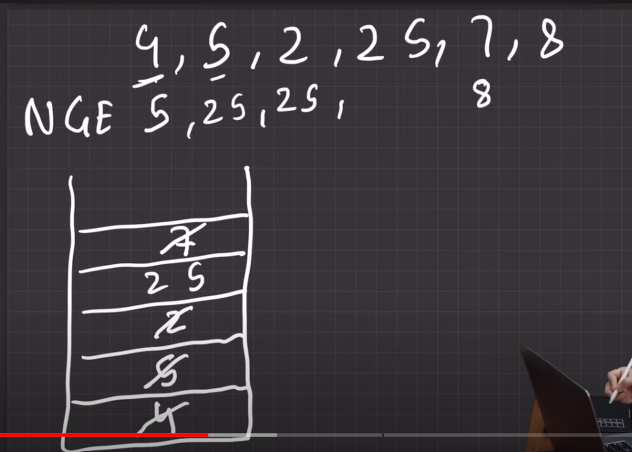 4, 5, 2, 25, 7, 8
NGE 5, 25, 25, 8
7
25
2
5
4